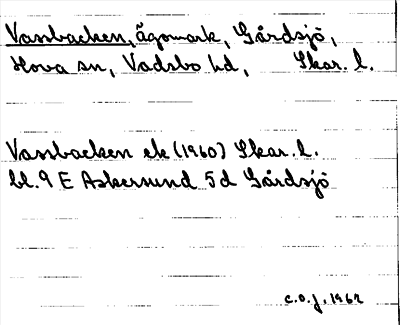 Vassbacken, Ägomark, Gårdsjö,
Hova sn, Vadsbo hd, Skar. l.
Vassbacken ek (1960) Skar. l.
bl. 9 E Askersund 5d Gårdsjö
C.O.J. 1962